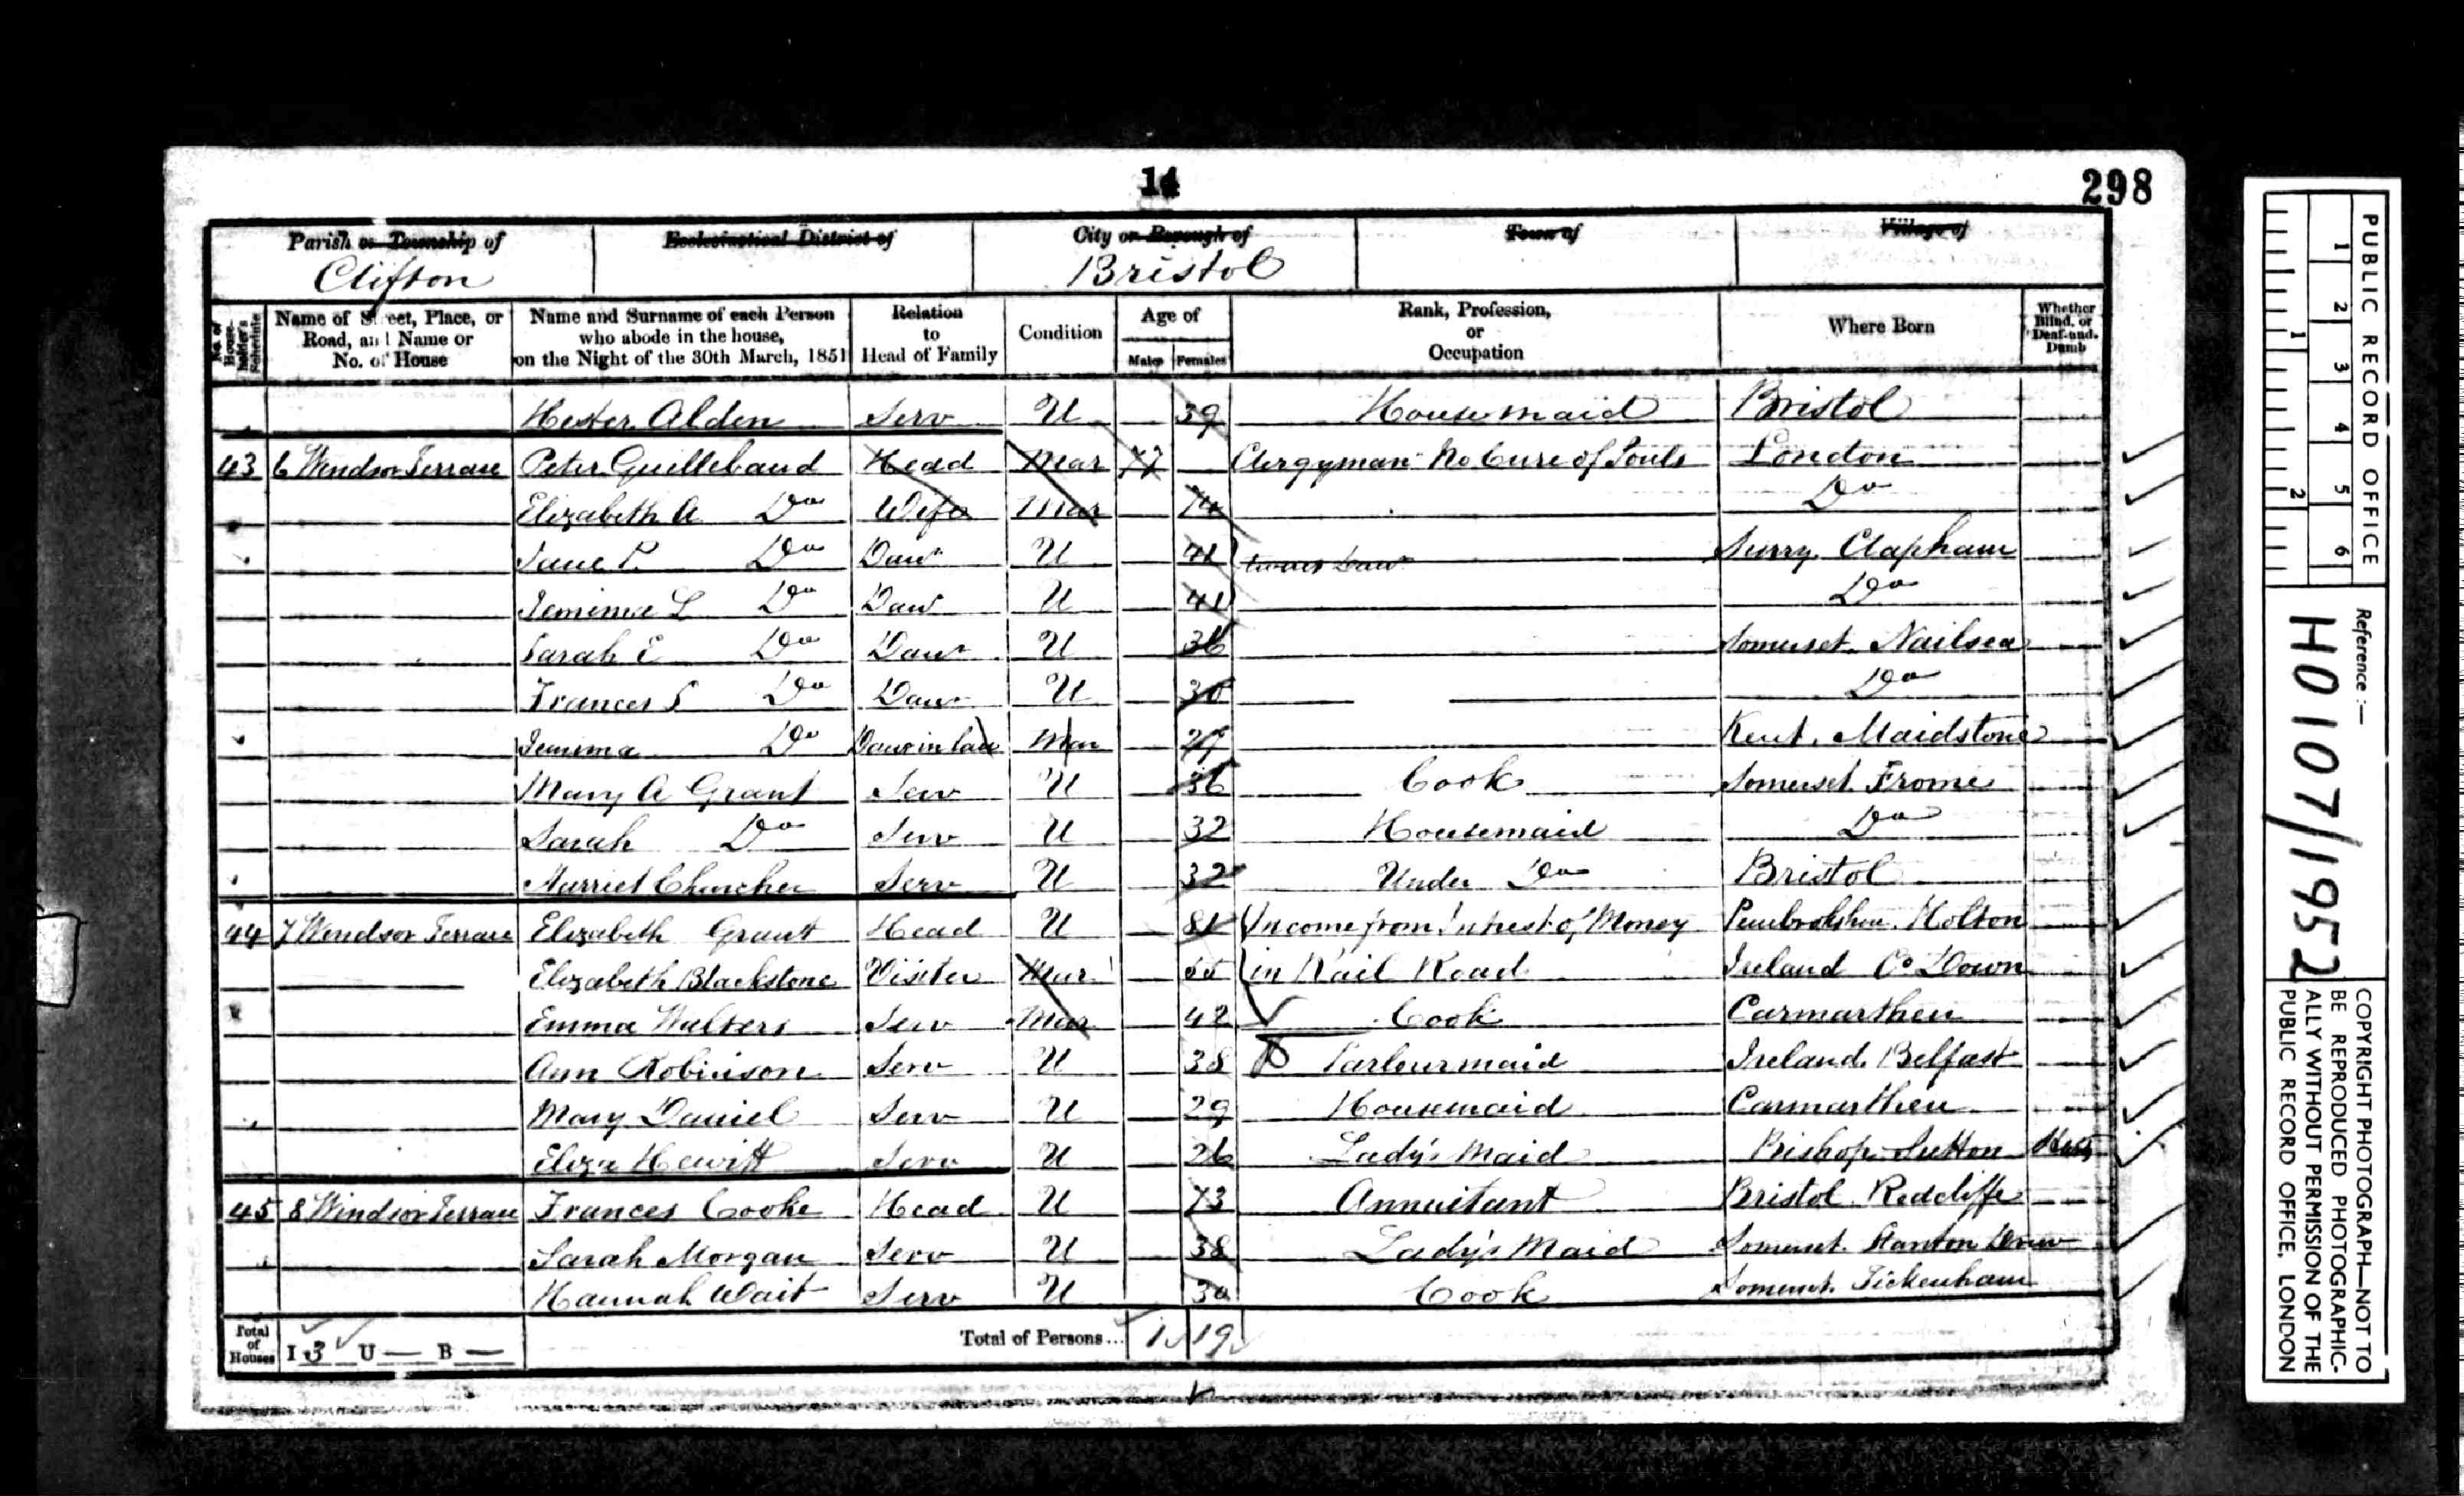 14
298
Parish or Township of
Clifton
Ecclesiastical District of
City or Borough of
Bristol
Town of
Village of
No. of House-holder's Schedule
Name of Street, Place, or Road, and Name or No. of House
Name and Surname of each Person who abode in the house, on the Night of the 30th March, 1851
Relation to Head of Family
Condition
Age of
Males Females
Rank, Profession, or Occupation
Where Born
Whether Blind, or Deaf-and-Dumb
Hester Alden Serv U 39 Housemaid Bristol
43 6 Windsor Terrace Peter Guillebaud Head Mar 77 Clergyman No Cure of Souls London
Elizabeth A Do Wife Mar Do
Jane P. Do Daur U 41 Surry Clapham
Jemima L Do Daur U 41 Do
Sarah E Do Daur U 36 Somerset. Nailsea
Frances S Do Daur U 30 Do
Jemima Do Daur in law Mar 29 Kent. Maidstone
Mary A Grant Serv U 36 Cook Somerset Frome
Sarah Do Serv U 32 Housemaid Do
Harriet Churcher Serv U 32 Under Do Bristol
44 7 Windsor Terrace Elizabeth Grant Head U 81 Income from Intrest of Money Pembrokshire. Holton
Elizabeth Blackstone Visiter Mar in Rail Road Ireland Co Down
Emma Walters Serv Mar 42 Cook Carmarthen
Ann Robinson Serv U 38 Parlourmaid Ireland. Belfast
Mary Daniel Serv U 29 Housemaid Carmarthen
Eliza Hewitt Serv U 26 Lady's Maid Bishop Sutton
45 8 Windsor Terrace Frances Cooke Head U 73 Annuitant Bristol Redcliffe
Sarah Morgan Serv U 38 Lady's Maid Somerset. Stanton Drew
Hannah Wait Serv U 30 Cook Somerset. Tickenham
Total of Houses I 3 U — B —
Total of Persons... 1 19
PUBLIC RECORD OFFICE
1 2 3 4 5 6
1 2
Reference :—
HO107/1952
COPYRIGHT PHOTOGRAPH—NOT TO
BE REPRODUCED PHOTOGRAPHIC-
ALLY WITHOUT PERMISSION OF THE
PUBLIC RECORD OFFICE, LONDON